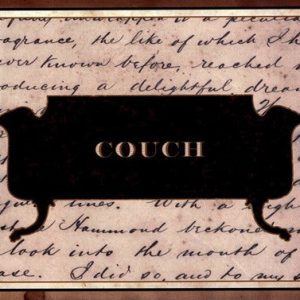 a peculiar
fragrance, the like of which I h
ever known before, reached m
oducing a delightful dream
COUCH
lines. With a
Hammond beckone
look into the mouth of
ase. I did so, and to my s